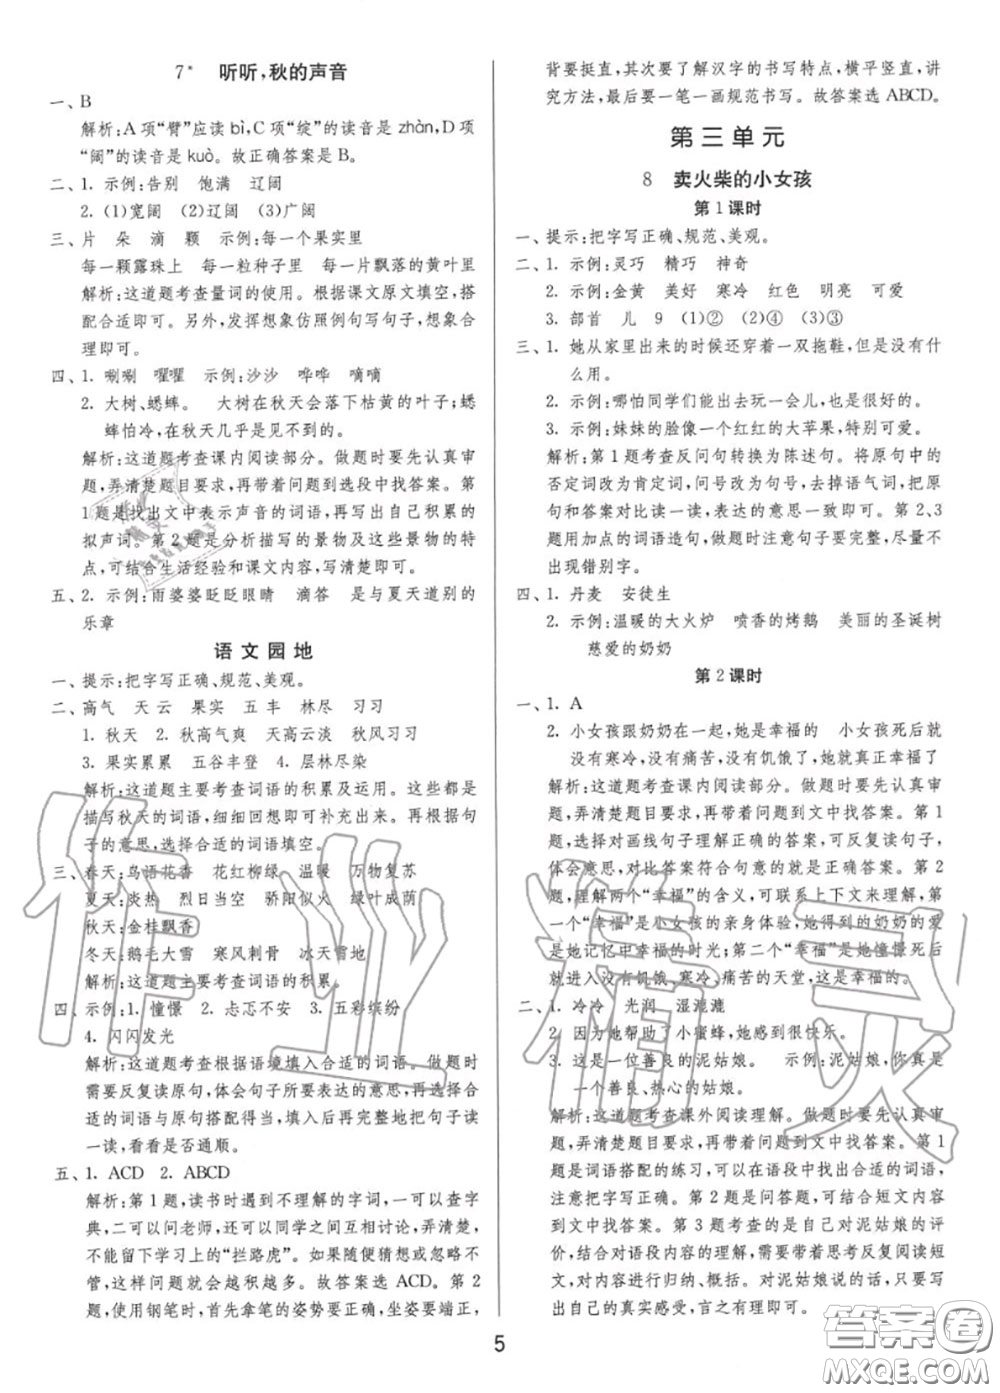 7* 听听,秋的声音
一、B
解析:A项“臂”应读bì,C项“绽”的读音是zhàn,D项
“阔”的读音是kuò。故正确答案是B。
二、1. 示例:告别 饱满 辽阔
2. (1)宽阔 (2)辽阔 (3)广阔
三、片 朵 滴 颗 示例:每一个果实里
每一颗露珠上 每一粒种子里 每一片飘落的黄叶里
解析:这道题考查量词的使用。根据课文原文填空,搭
配合适即可。另外,发挥想象仿照例句写句子,想象合
理即可。
四、1. 唰唰 㘗㘗 示例:沙沙 哗哗 嘀嘀
2. 大树、蟋蟀。 大树在秋天会落下枯黄的叶子;蟋
蟀怕冷,在秋天几乎是见不到的。
解析:这道题考查课内阅读部分。做题时要先认真审
题,弄清楚题目要求,再带着问题到选段中找答案。第
1题是找出文中表示声音的词语,再写出自己积累的
拟声词。第2题是分析描写的景物及这些景物的特
点,可结合生活经验和课文内容,写清楚即可。
五、2. 示例:雨婆婆眨眨眼睛 滴答 是与夏天道别的
乐章
语文园地
一、提示:把字写正确、规范、美观。
二、高气 天云 果实 五丰 林尽 习习
1. 秋天 2. 秋高气爽 天高云淡 秋风习习
3. 果实累累 五谷丰登 4. 层林尽染
解析:这道题主要考查词语的积累及运用。这些都是
描写秋天的词语,细细回想即可补充出来。再根据句
子的意思,选择合适的词语填空。
三、春天:鸟语花香 花红柳绿 温暖 万物复苏
夏天:炎热 烈日当空 骄阳似火 绿叶成荫
秋天:金桂飘香
冬天:鹅毛大雪 寒风刺骨 冰天雪地
解析:这道题主要考查词语的积累。
四、示例:1. 憧憬 2. 忐忑不安 3. 五彩缤纷
4. 闪闪发光
解析:这道题考查根据语境填入合适的词语。做题时
需要反复读原句,体会句子所要表达的意思,再选择合
适的词语与原句搭配得当,填入后再完整地把句子读
一读,看看是否通顺。
五、1. ACD 2. ABCD
解析:第1题,读书时遇到不理解的字词,一可以查字
典,二可以问老师,还可以同学之间互相讨论,弄清楚,
不能留下学习上的“拦路虎”。如果随便猜想或忽略不
管,这样问题就会越积越多。故答案选ACD。第2
题,使用钢笔时,首先拿笔的姿势要正确,坐姿要端正,
背要挺直,其次要了解汉字的书写特点,横平竖直,讲
究方法,最后要一笔一画规范书写。故答案选ABCD。
第三单元
8 卖火柴的小女孩
第1课时
一、提示:把字写正确、规范、美观。
二、1. 示例:灵巧 精巧 神奇
2. 示例:金黄 美好 寒冷 红色 明亮 可爱
3. 部首 儿 9 (1)② (2)④ (3)③
三、1. 她从家里出来的时候还穿着一双拖鞋,但是没有什
么用。
2. 示例:哪怕同学们能出去玩一会儿,也是很好的。
3. 示例:妹妹的脸像一个红红的大苹果,特别可爱。
解析:第1题考查反问句转换为陈述句。将原句中的
否定词改为肯定词,问号改为句号,去掉语气词,把原
句和答案对比读一读,表达的意思一致即可。第2、3
题用加点的词语造句,做题时注意句子要完整,尽量不
出现错别字。
四、1. 丹麦 安徒生
2. 示例:温暖的大火炉 喷香的烤鹅 美丽的圣诞树
慈爱的奶奶
第2课时
一、1. A
2. 小女孩跟奶奶在一起,她是幸福的 小女孩死后就
没有寒冷,没有痛苦,没有饥饿了,她真正幸福了
解析:这道题考查课内阅读部分。做题时要先认真审
题,弄清楚题目要求,再带着问题到文中找答案。第1
题,选择对画线句子理解正确的答案,可反复读句子,
体会意思,对比答案符合句意的就是正确答案。第2
题,理解两个“幸福”的含义,可联系上下文来理解,第
一个“幸福”是小女孩的亲身体验,她得到的奶奶的爱
是她记忆中幸福的时光;第二个“幸福”是她憧憬死后
就进入没有饥饿、寒冷、痛苦的天堂,这是幸福的。
二、1. 冷冷 光润 湿漉漉
2. 因为她帮助了小蜜蜂,她感到很快乐。
3. 这是一位善良的泥姑娘。 示例:泥姑娘,你真是
一个善良、热心的姑娘。
解析:这道题考查课外阅读理解。做题时要先认真审
题,弄清楚题目要求,再带着问题到文中找答案。第1
题是词语搭配的练习,可以在语段中找出合适的词语,
注意把字写正确。第2题是问答题,可结合短文内容
到文中找答案。第3题考查的是自己对泥姑娘的评
价,结合对语段内容的理解,需要带着思考反复阅读短
文,并进行归纳、概括。对泥姑娘说的话,只要写
出自己的真实感受,言之有理即可。
5
作业精灵
答案圈
MXQE.COM